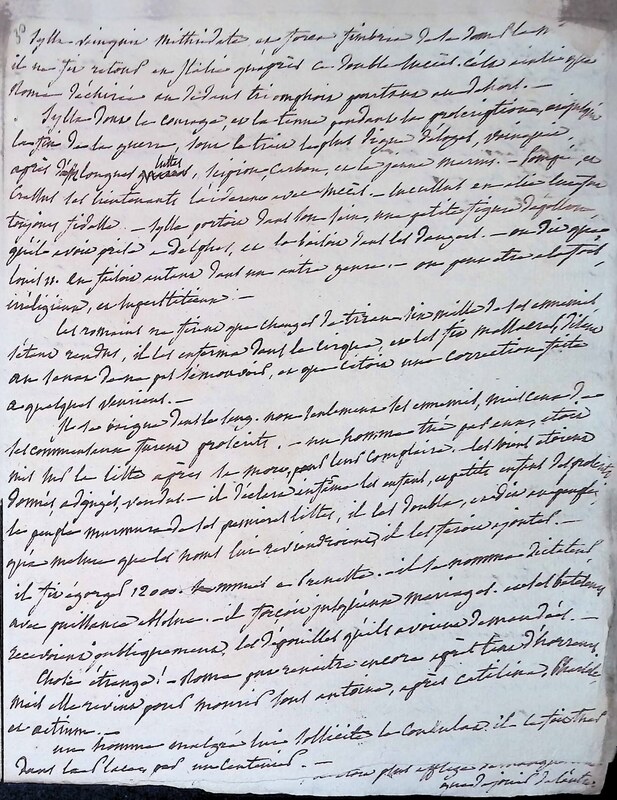 Sylla vainquit Mithridate en forca fimbria de la
il ne fit retour en Italie qu'après ce double succès. cela avoit que
Rome déchirée au dedans triomphoit pourtant au dehors. —
Sylla dont le courage, et la tenue pendant la proscription,
la fin de la guerre, sont le trait le plus digne d'éloges, vainquit
après longues luttes, Scipion, Carbon, et le jeune Marius. — Pompé, et
Crassus ses lieutenants l'aiderent avec succès. — Lucullus en asie lui fut
toujours fidelle. — Sylla portoit dans son sein, une petite figure d'apollon,
qu'il avoit prise a Delphes, et la baisoit dans les dangers. — on dit que
Louis 11. en faisoit autant dans un autre genre. — on peut etre a la fois
irreligieux, et superstitieux. —
Les romains ne firent que changer de tiran. Six mille de ses ennemis
s'étant rendus, il les enferma dans le cirque, et les fit massacrer, disant
au senat de ne pas s'émouvoir, et que c'étoit une correction faite
a quelques vauriens. —
Il se baigna dans le sang. non seulement ses ennemis, mais ceux de
ses commentaires furent proscrits. — un homme tué par eux, étoit
mis sur la liste après sa mort, pour leur complaire. — les biens étoient
donnés, adjugés, vendus. — il déclara infâmes les enfans, et petits enfans des proscrits
le peuple murmura de ses premieres listes, il les doubla, et dit au peuple
qu'a mesure que les noms lui reviendroient, il les feroit ajouter. —
il fit égorger 12000. hommes a Preneste. — il se nomma dictateur
avec puissance absolue. — il forçoit jusqu'aux mariages. et ses bateleurs
recevoient publiquement, les dépouilles qu'ils avoient demandées. —
Chose étrange! — Rome put renaitre encore après tant d'horreurs,
mais elle revint pour mourir sous antoine, après catilina, Pharsale
et actium. —
un homme malgré lui sollicite le Consulat. il le fait tuer
dans la place, par un Centurion. —
plus affligé de manquer